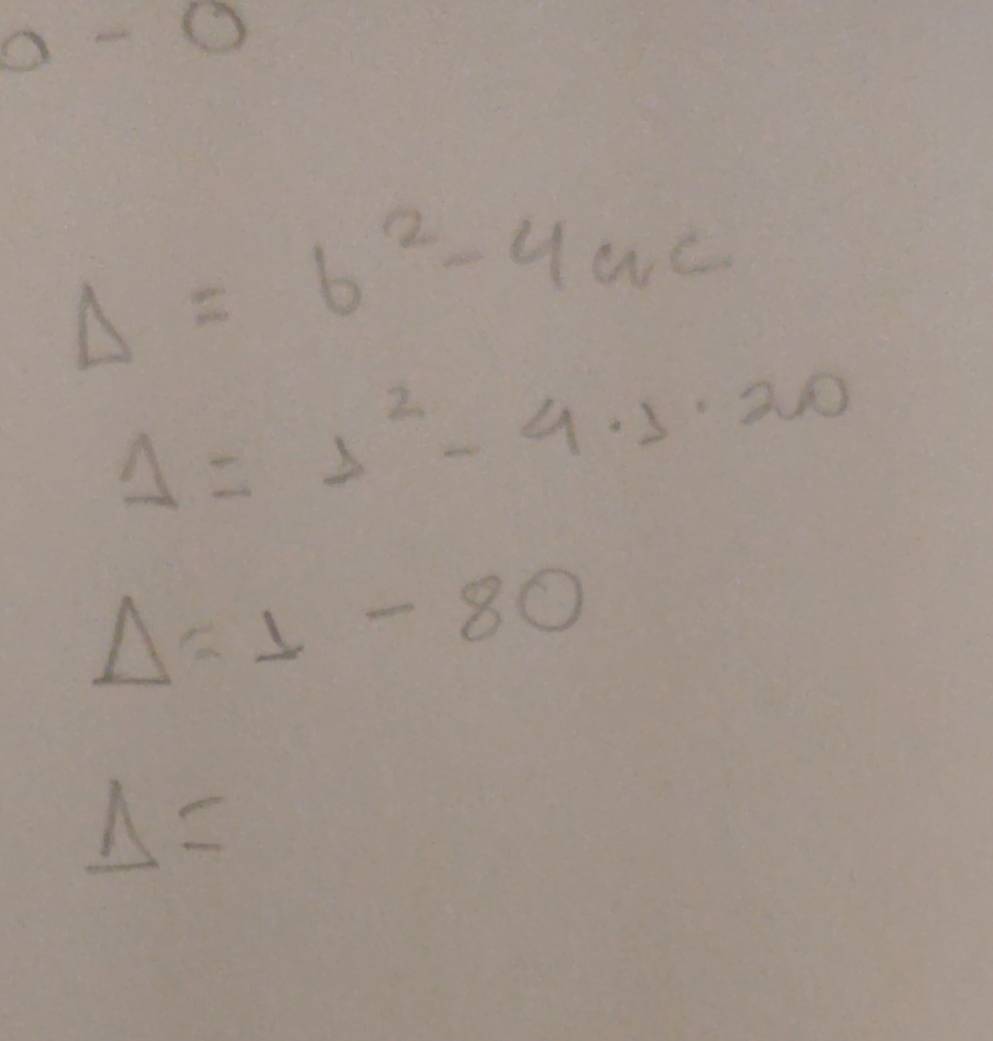 0 - 0
Δ = b² - 4ac
Δ = 1² - 4 · 1 · 20
Δ = 1 - 80
Δ =